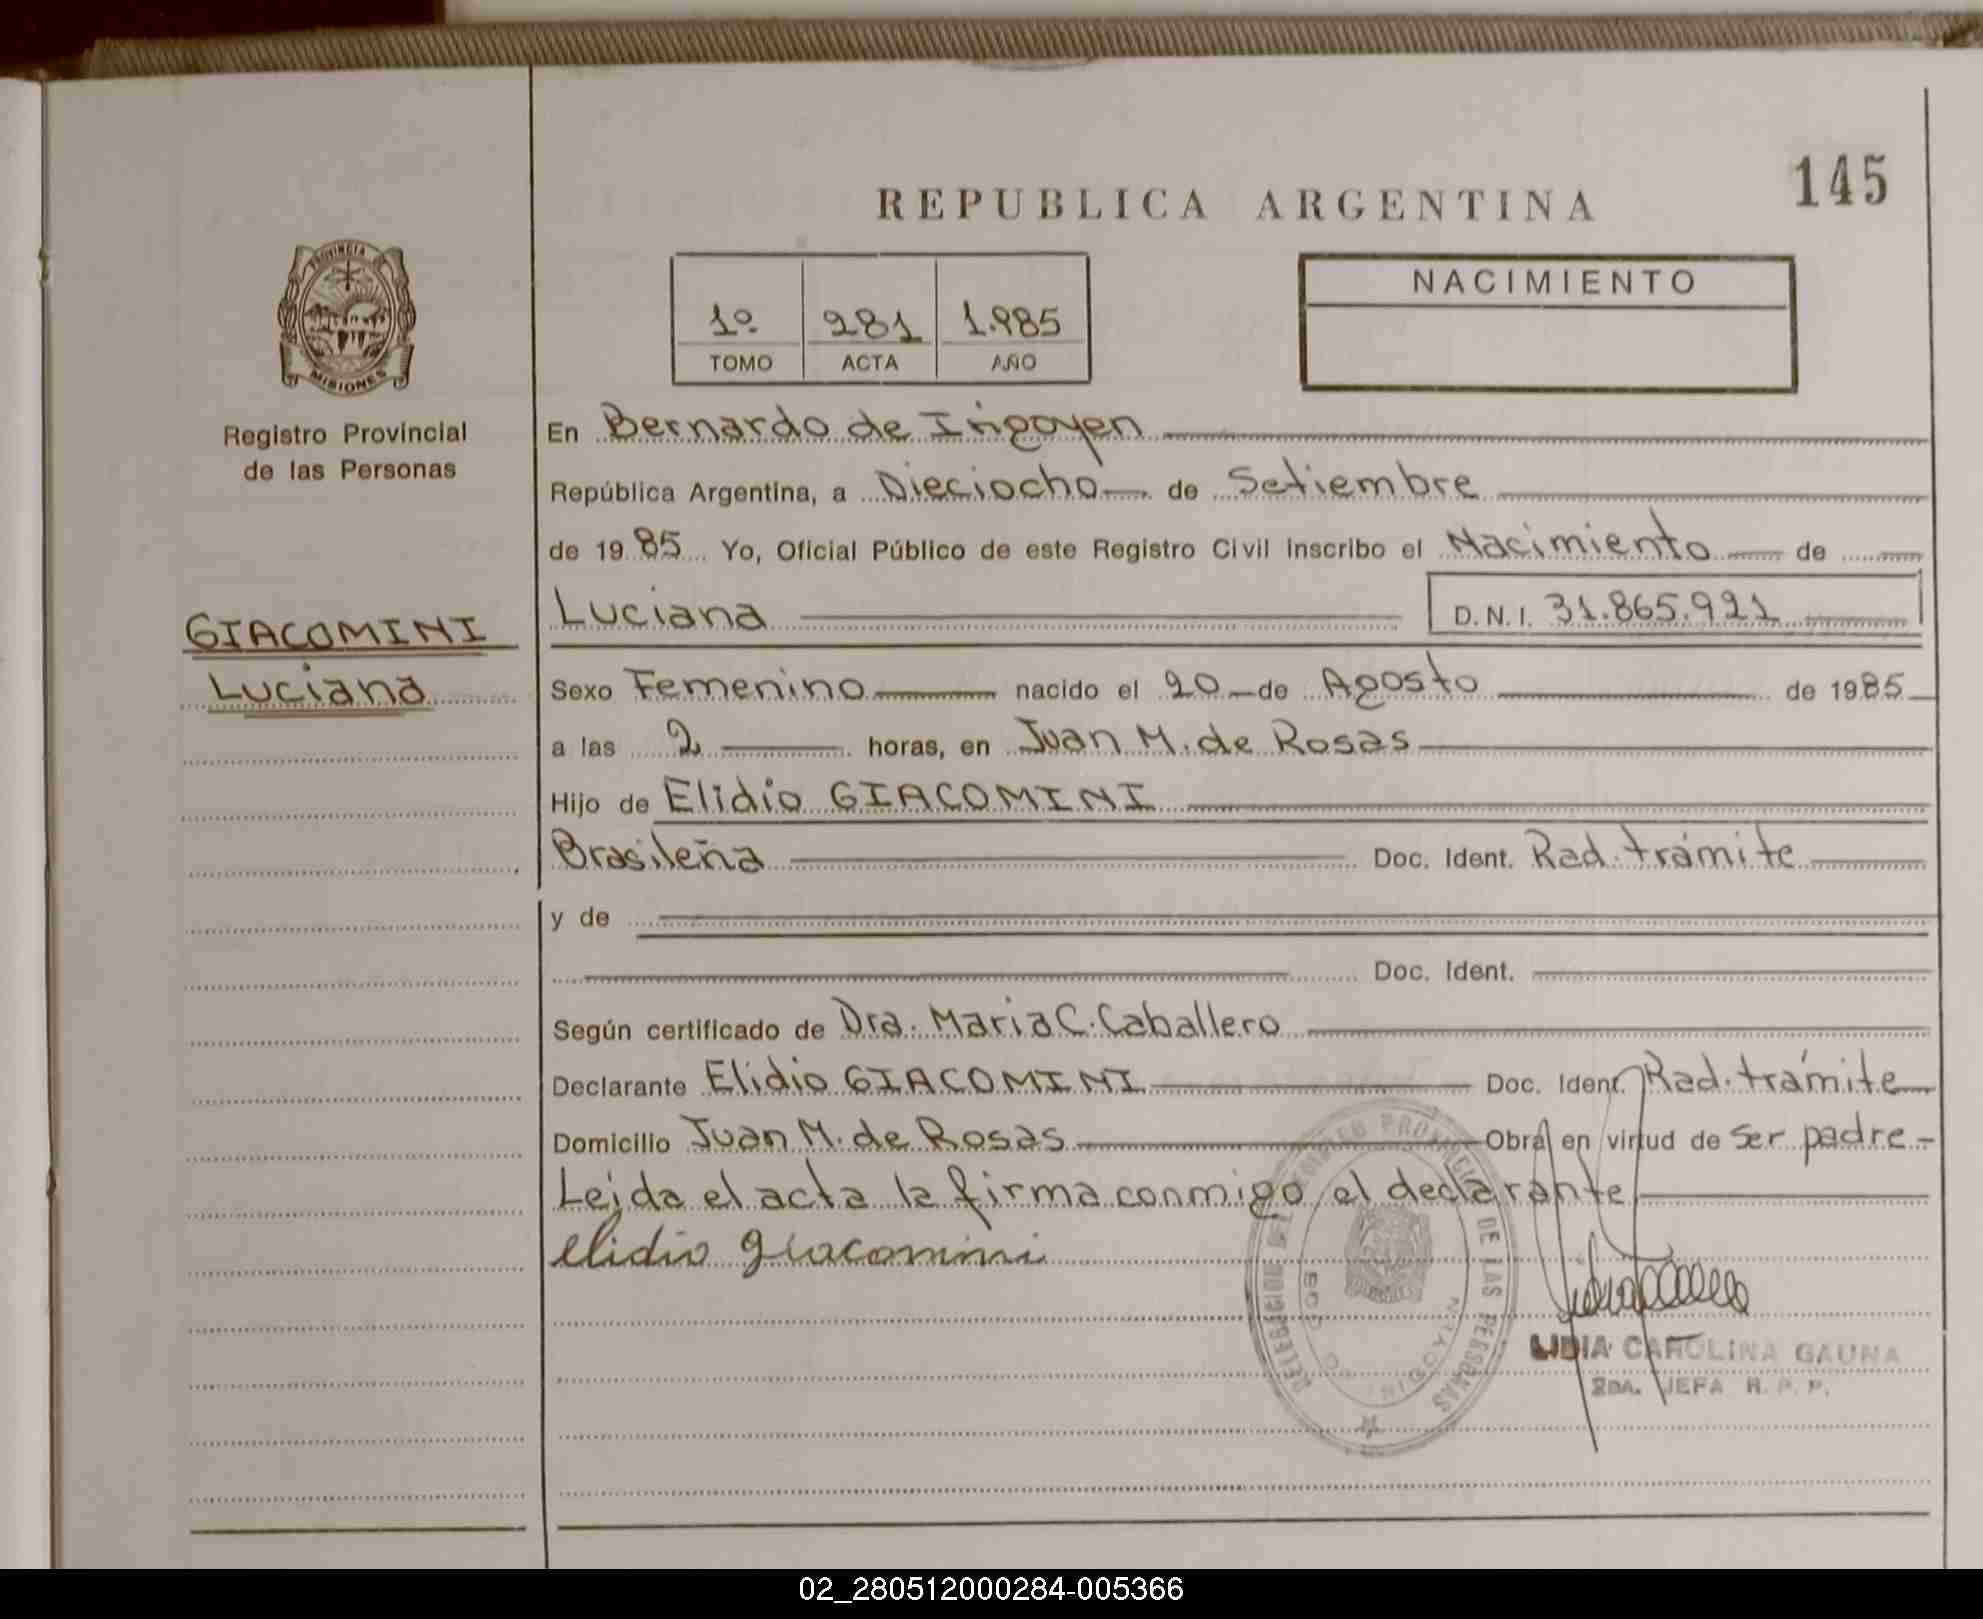 145
REPUBLICA ARGENTINA
PROVINCIA DE
MISIONES
Registro Provincial
de las Personas
1º 281 1.985
TOMO ACTA AÑO
NACIMIENTO
En Bernardo de Irigoyen
República Argentina, a Dieciocho de Setiembre
de 1985 Yo, Oficial Público de este Registro Civil inscribo el Nacimiento de
GIACOMINI
Luciana
Luciana D.N.I. 31.865.921
Sexo Femenino nacido el 20 de Agosto de 1985
a las 2 horas, en Juan M. de Rosas
Hijo de Elidio GIACOMINI
Brasileña Doc. Ident. Rad. trámite
y de
Doc. Ident.
Según certificado de Dra. Maria C. Caballero
Declarante Elidio GIACOMINI Doc. Ident. Rad. trámite
Domicilio Juan M. de Rosas Obra en virtud de ser padre.-
Leida el acta la firma conmigo el declarante
elidio giacomini
DELEGACION DEL REGISTRO PROVINCIAL DE LAS PERSONAS
BDO. DE IRIGOYEN
LIDIA CAROLINA GAUNA
2DA. JEFA R. P. P.
02_280512000284-005366